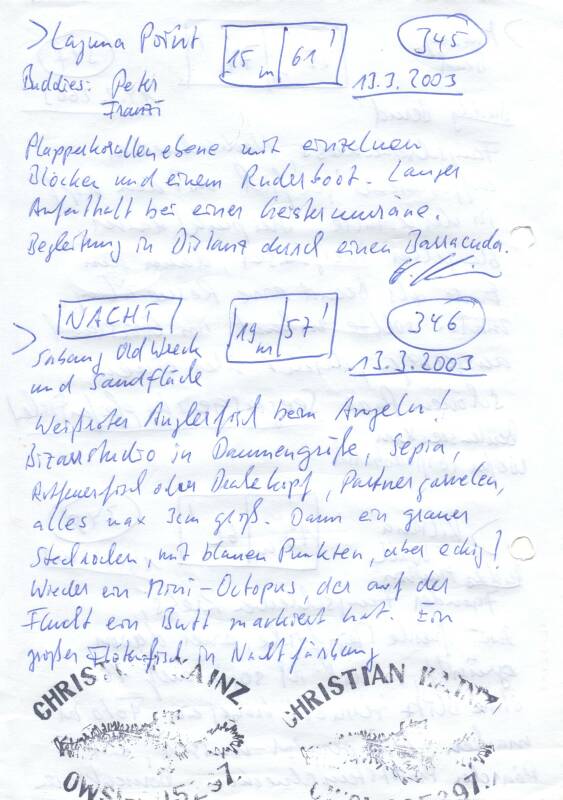 > Laguna Point
15 m | 61'
345
Buddies: Peter
13.3.2003
Franzi
Plapperkorallenebene mit einzelnen
Blöcken und einem Ruderboot. Langer
Aufenthalt bei einer Geistermuräne.
Begleitung in Distanz durch einen Barracuda.
NACHT
19 m | 57'
346
> Sabang Old Wreck
13.3.2003
und Sandfläche
Weißroter Anglerfisch beim Angeln!
Bizarrstudio in Daumengröße, Sepia,
Rotfeuerfisch oder Drachekopf, Partnergarnelen,
alles max 3cm groß. Dann ein grauer
Stechrochen, mit blauen Punkten, aber eckig!
Wieder ein Mini-Octopus, der auf der
Flucht ein Butt markiert hat. Ein
großer Flötenfisch in Nachtfärbung
CHRISTIAN KAINZ
CHRISTIAN KAINZ